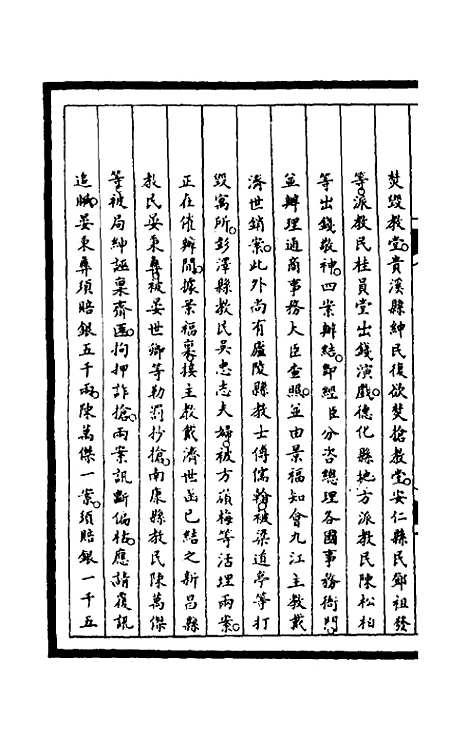 焚毀教堂。貴溪縣紳民復欲焚搶教堂。安仁縣民鄒祖發
等派教民桂員堂出錢演戲。德化縣地方派教民陳松柏
等出錢敬神。四案辦結。即經臣分咨總理各國事務衙門。
並辦理通商事務大臣查照。並由景福知會九江主教戴
濟世銷案。此外尚有廬陵縣教士傅儒翰被梁道亭等打
毀寓所。彭澤縣教民吳忠志夫婦。被方碩梅等活埋兩案。
正在催辦間。據景福稟。接主教戴濟世函已結之新昌縣
教民晏秉彝被晏世卿等勒罰抄搶。南康縣教民陳萬傑
等被局紳誣稟齋匪。拘押詐搶。兩案訊斷偏枯。應請覆訊
追贓。晏秉彝須賠銀五千兩。陳萬傑一案。須賠銀一千五